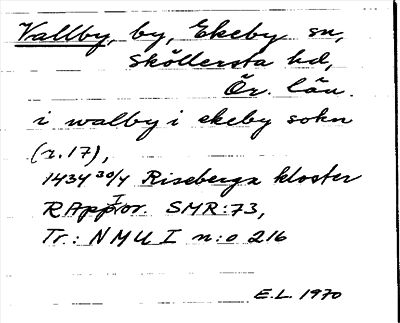 Vallby, by, Ekeby sn,
Sköllersta hd,
Ör. län.
i walby i ekeby sokn
(r. 17),
1434 30/4 Riseberga kloster
RApp I or. SMR: 73,
Tr.: NMU I n:o 216
E.L. 1970